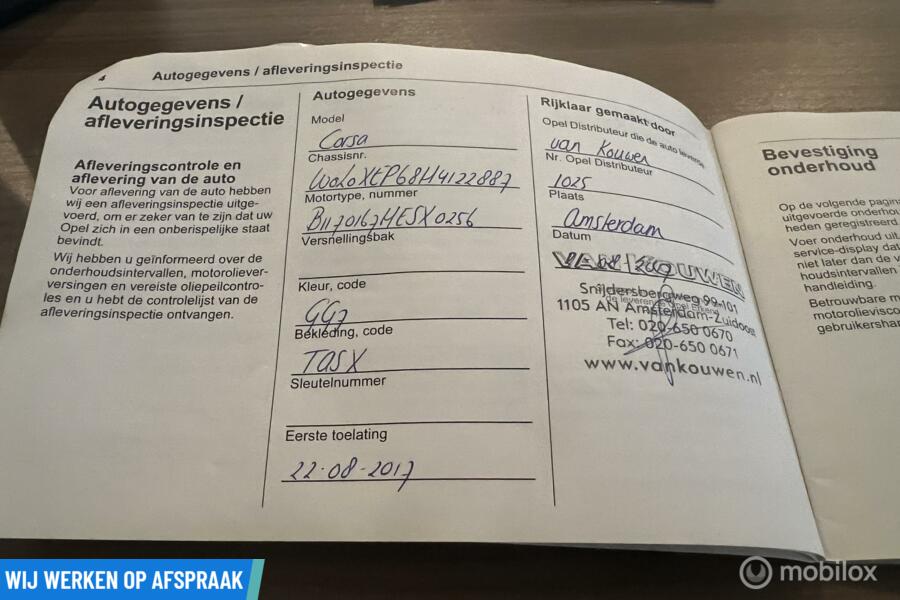 4
Autogegevens / afleveringsinspectie
Autogegevens /
afleveringsinspectie
Afleveringscontrole en
aflevering van de auto
Voor aflevering van de auto hebben
wij een afleveringsinspectie uitge-
voerd, om er zeker van te zijn dat uw
Opel zich in een onberispelijke staat
bevindt.
Wij hebben u geïnformeerd over de
onderhoudsintervallen, motoroliever-
versingen en vereiste oliepeilcontro-
les en u hebt de controlelijst van de
afleveringsinspectie ontvangen.
Autogegevens
Model
Corsa
Chassisnr.
W0L0XEP68H4122887
Motortype, nummer
B1170167HESX0256
Versnellingsbak
Kleur, code
GG7
Bekleding, code
TASX
Sleutelnummer
Eerste toelating
22-08-2017
Rijklaar gemaakt door
Opel Distributeur die de auto leverde
van Kouwen
Nr. Opel Distributeur
1025
Plaats
Amsterdam
Datum
VAN KOUWEN
Snijdersbergweg 99-101
1105 AN Amsterdam-Zuidoost
Tel: 020-650 0670
Fax: 020-650 0671
www.vankouwen.nl
Bevestiging
onderhoud
Op de volgende pagina
uitgevoerde onderhou
heden geregistreerd.
Voer onderhoud uit
service-display dat
niet later dan de v
houdsintervallen
handleiding.
Betrouwbare m
motorolievisco
gebruikershan
WIJ WERKEN OP AFSPRAAK
mobilox